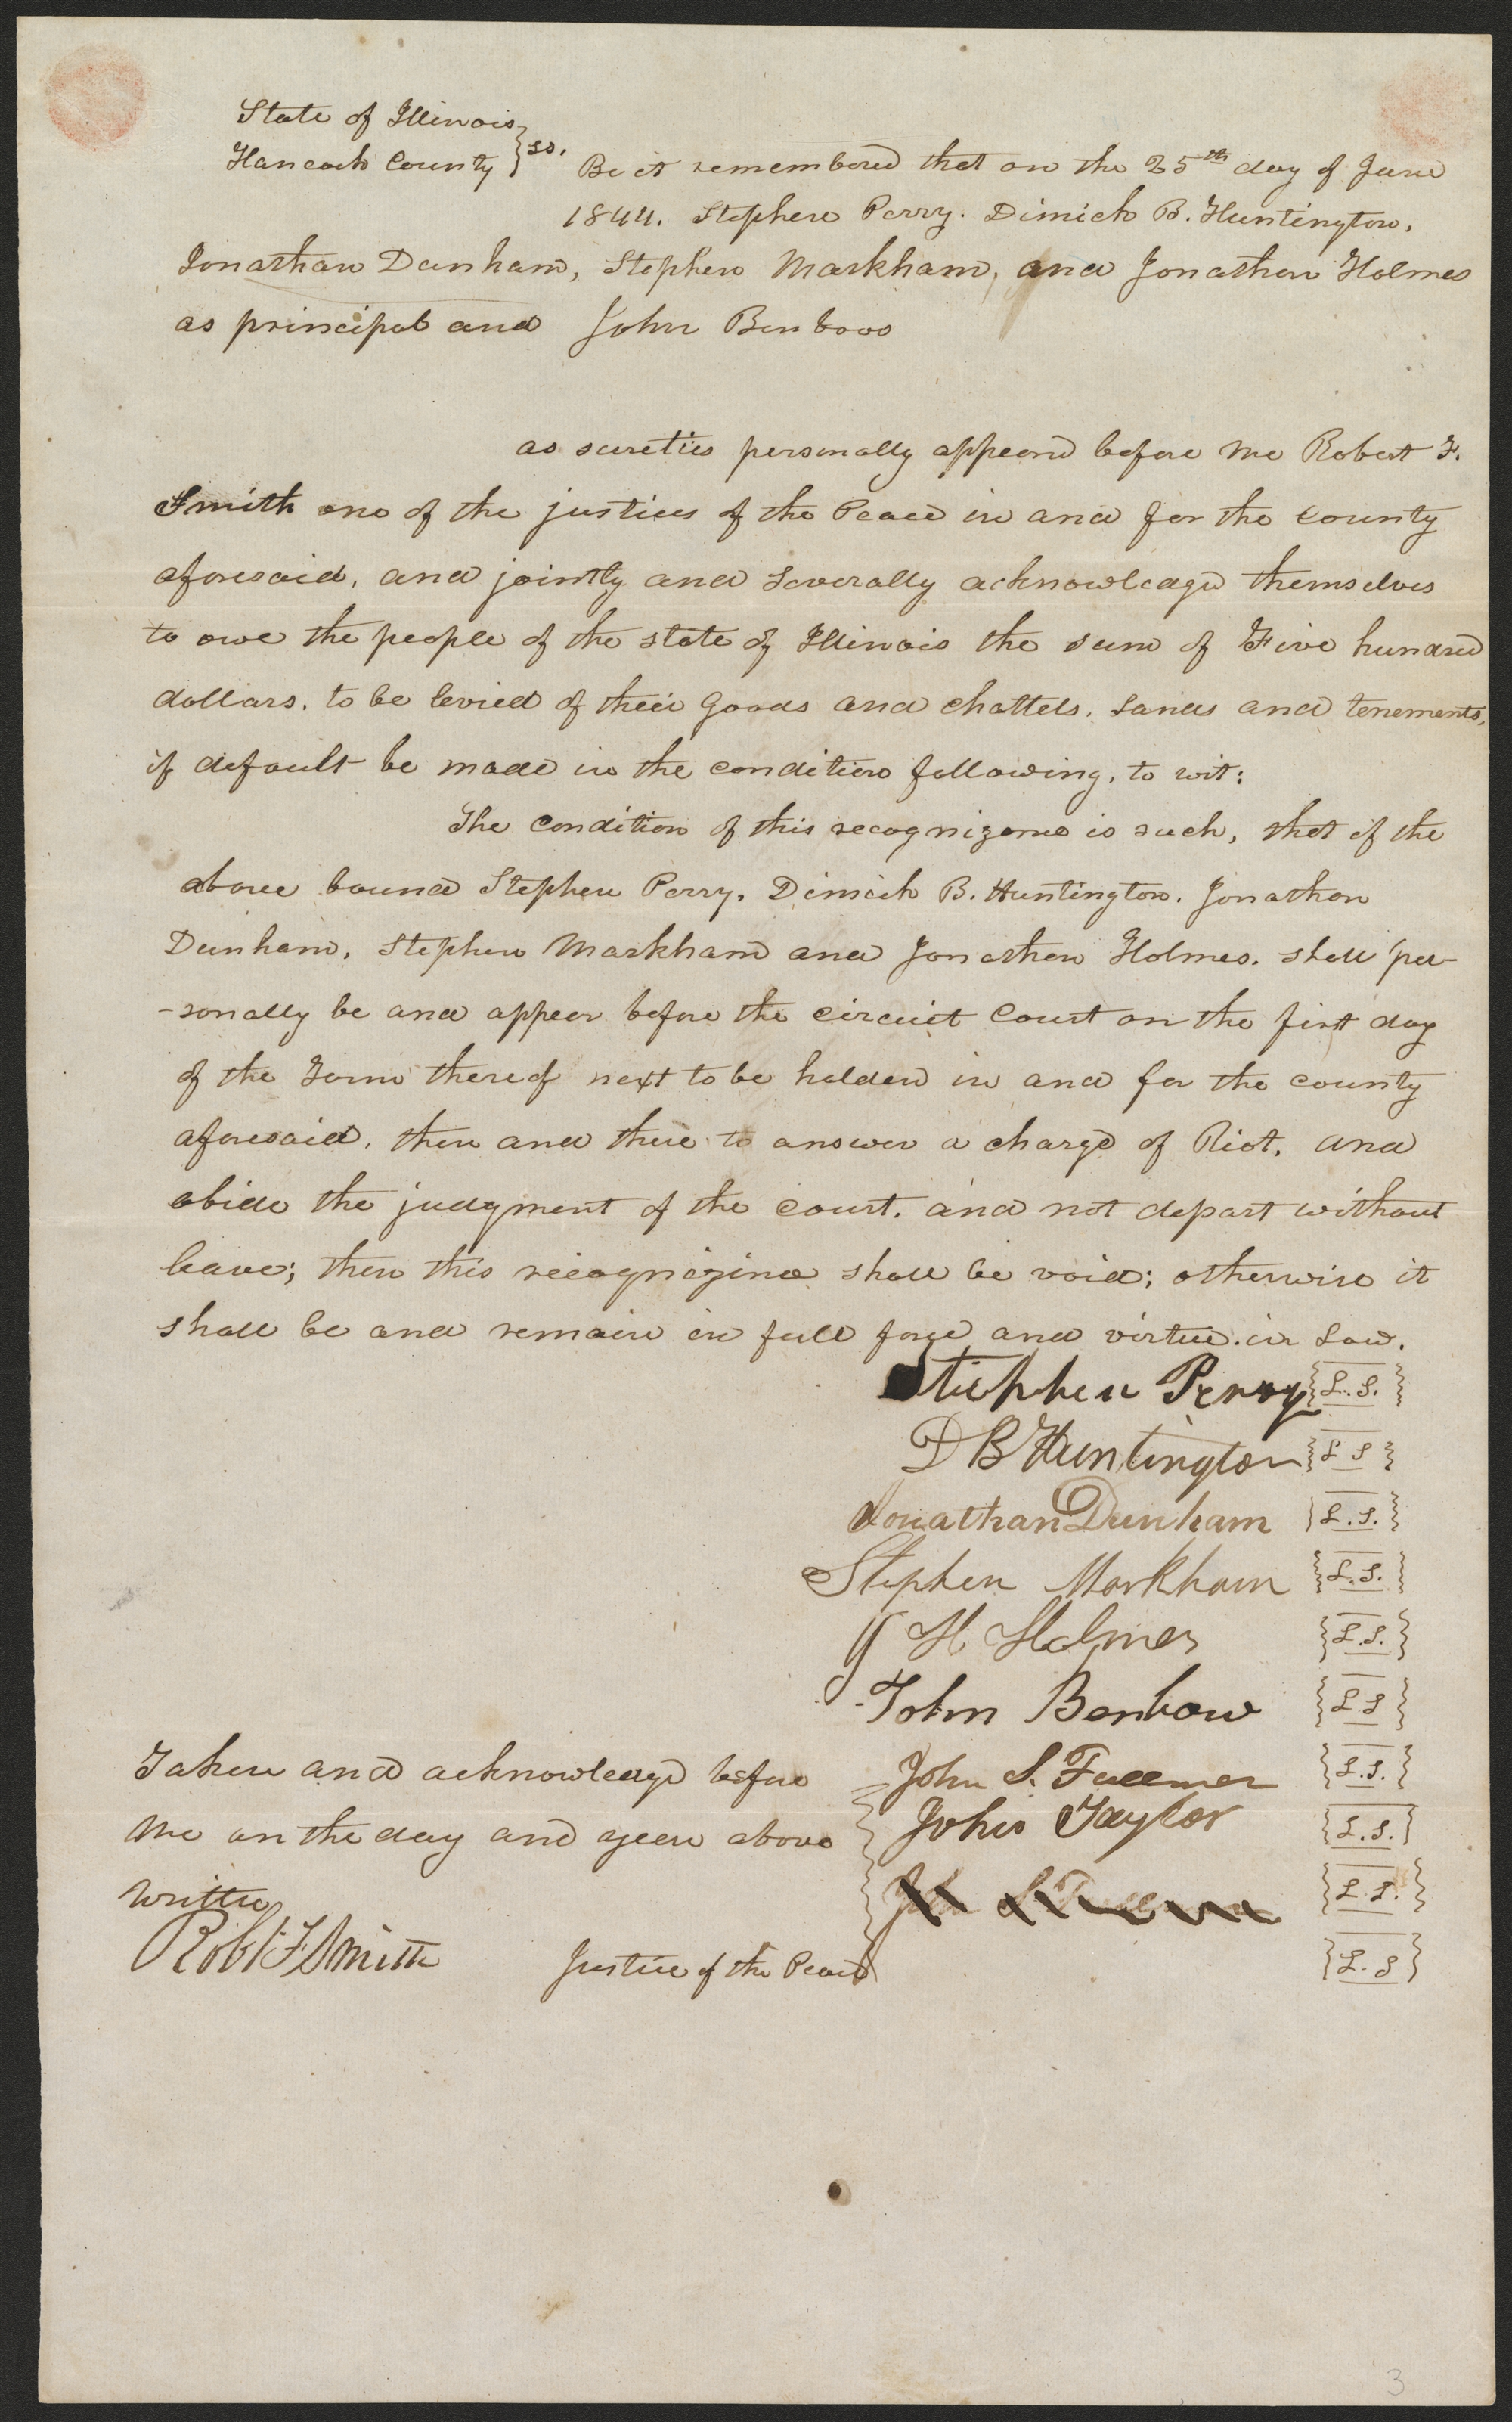 State of Illinois
Hancock County } ss. Be it remembered that on the 25th day of June
1844. Stephen Perry. Dimick B. Huntington,
Jonathan Dunham, Stephen Markham, and Jonathan Holmes
as principal and John Benbow
as sureties personally appeard before me Robert F.
Smith one of the justices of the Peace in and for the county
aforesaid, and jointly and severally acknowledged themselves
to owe the people of the state of Illinois the sum of Five hundred
dollars. to be levied of their goods and chattels, Lands and tenements,
if default be made in the condition following, to wit:
The Condition of this recognizance is such, that if the
above bound Stephen Perry, Dimick B. Huntington. Jonathan
Dunham, Stephen Markham and Jonathan Holmes. shall per-
-sonally be and appear before the circuit Court on the first day
of the Term thereof next to be holden in and for the county
aforesaid, then and there to answer a charge of Riot, and
abide the judgment of the court. and not depart without
leave; then this recognizance shall be void; otherwise it
shall be and remain in full force and virtue in Law.
Stephen Perry {L.S.}
D B Huntington {L S}
Jonathan Dunham {L.S.}
Stephen Markham {L.S.}
J H Holmes {L.S.}
John Benbow {L S}
Taken and acknowledged before John S. Fullmer {L.S.}
me on the day and year above John Taylor {L.S.}
written {L.S.}
Robt F Smith Justice of the Peace {L.S}
3